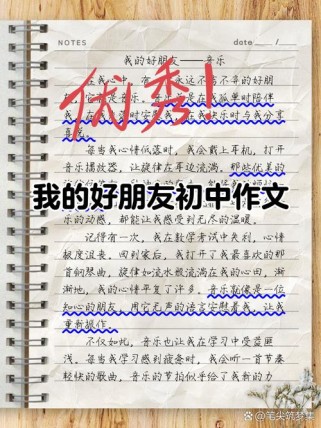 NOTES
date / /
我的好朋友——音乐
在我心中,有一个永远不离不弃的好朋
友,它就是音乐。音乐总是在我孤单时陪伴
我,在我失落时安慰我,在我快乐时与我分享
喜悦。
优秀!
每当我心情低落时,我会戴上耳机,打开
音乐播放器,让旋律在耳边流淌。那些优美的
我的好朋友初中作文
乐的动感,都能让我感受到无尽的温暖。
记得有一次,我在数学考试中失利,心情
极度沮丧。回到家后,我打开了我最喜欢的那
首钢琴曲,旋律如流水般流淌在我的心田,渐
渐地,我的心情平复了许多。音乐就像是一位
知心的朋友,用它无声的语言安慰着我,让我
重新振作。
不仅如此,音乐也让我在学习中受益匪
浅。每当我学习感到疲惫时,我会听一首节奏
轻快的歌曲,音乐的节拍似乎给了我新的力
@笔尖筑梦集